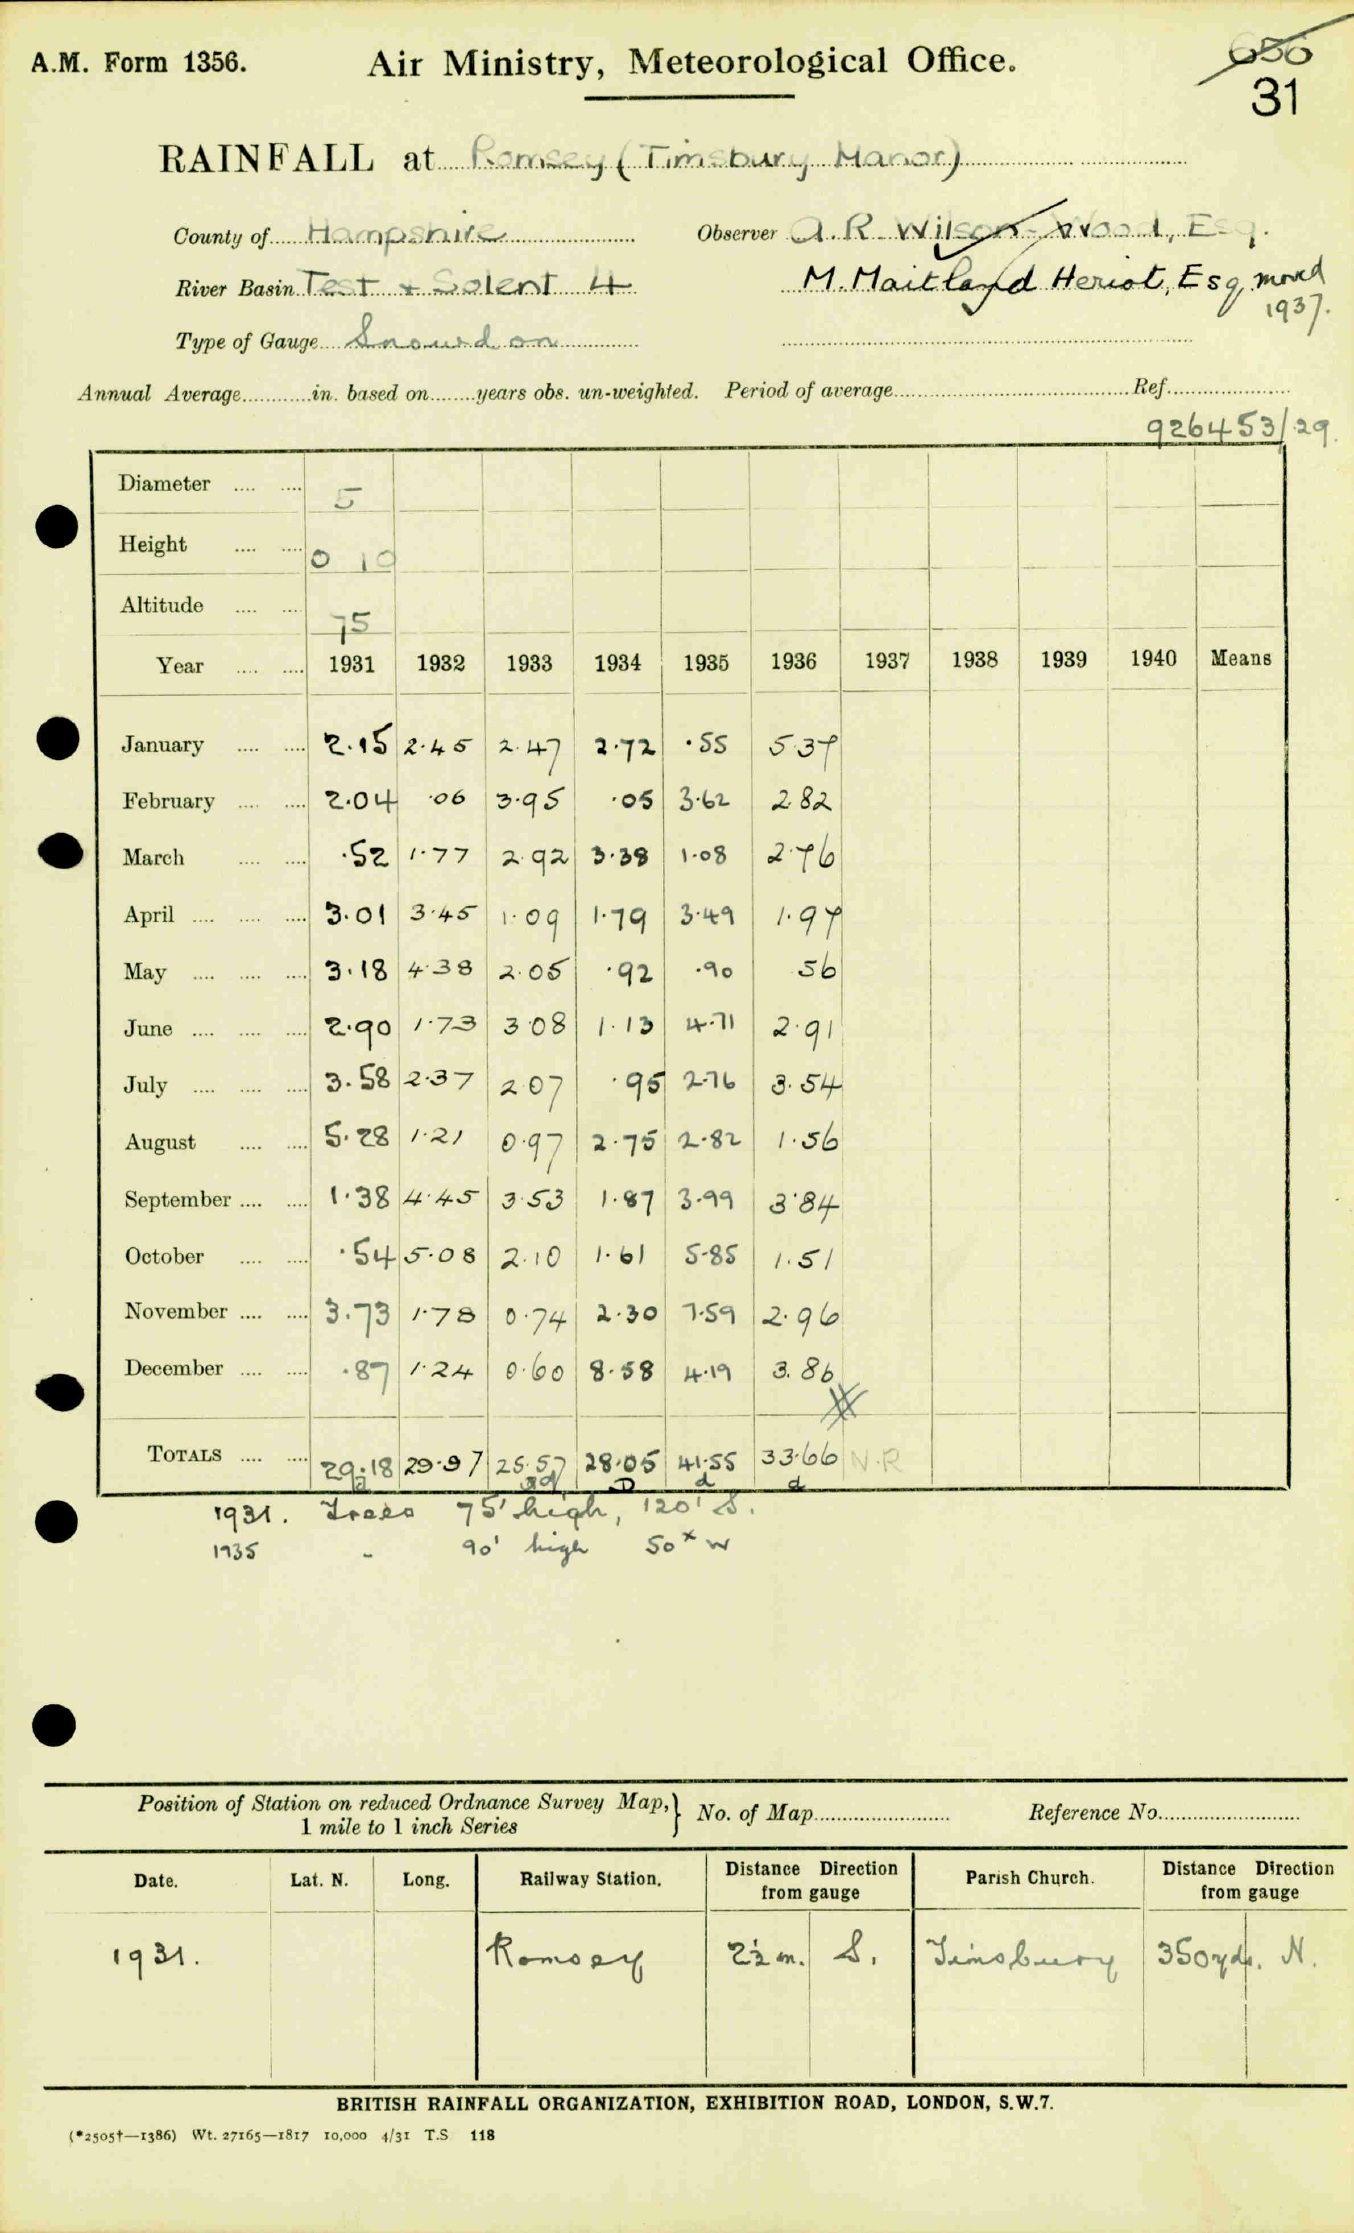 A.M. Form 1356. Air Ministry, Meteorological Office. 656
31
RAINFALL at Romsey (Timsbury Manor)
County of Hampshire Observer A. R. Wilson-Wood, Esq.
River Basin Test + Solent 4 M. Maitland Heriot, Esq, moved
1937.
Type of Gauge Snowdon
Annual Average in. based on years obs. un-weighted. Period of average Ref.
926453/29.
Diameter 5
Height 0 10
Altitude 75
Year 1931 1932 1933 1934 1935 1936 1937 1938 1939 1940 Means
January 2.15 2.45 2.47 2.72 .55 5.37
February 2.04 .06 3.95 .05 3.62 2.82
March .52 1.77 2.92 3.38 1.08 2.76
April 3.01 3.45 1.09 1.79 3.49 1.97
May 3.18 4.38 2.05 .92 .90 56
June 2.90 1.73 3.08 1.13 4.71 2.91
July 3.58 2.37 2.07 .95 2.76 3.54
August 5.28 1.21 0.97 2.75 2.82 1.56
September 1.38 4.45 3.53 1.87 3.99 3.84
October .54 5.08 2.10 1.61 5.85 1.51
November 3.73 1.78 0.74 2.30 7.59 2.96
December .87 1.24 0.60 8.58 4.19 3.86
TOTALS 29.18 29.97 25.57 28.05 41.55 33.66 N.R
D d d
1931. Trees 75' high, 120' S.
1935 " 90' high 50x W
Position of Station on reduced Ordnance Survey Map, } No. of Map Reference No.
1 mile to 1 inch Series
Date. Lat. N. Long. Railway Station. Distance Direction from gauge Parish Church. Distance Direction from gauge
1931. Romsey 2½ m. S. Timsbury 350 yds. N.
BRITISH RAINFALL ORGANIZATION, EXHIBITION ROAD, LONDON, S.W.7.
(*2505†—1386) Wt. 27165—1817 10,000 4/31 T.S 118